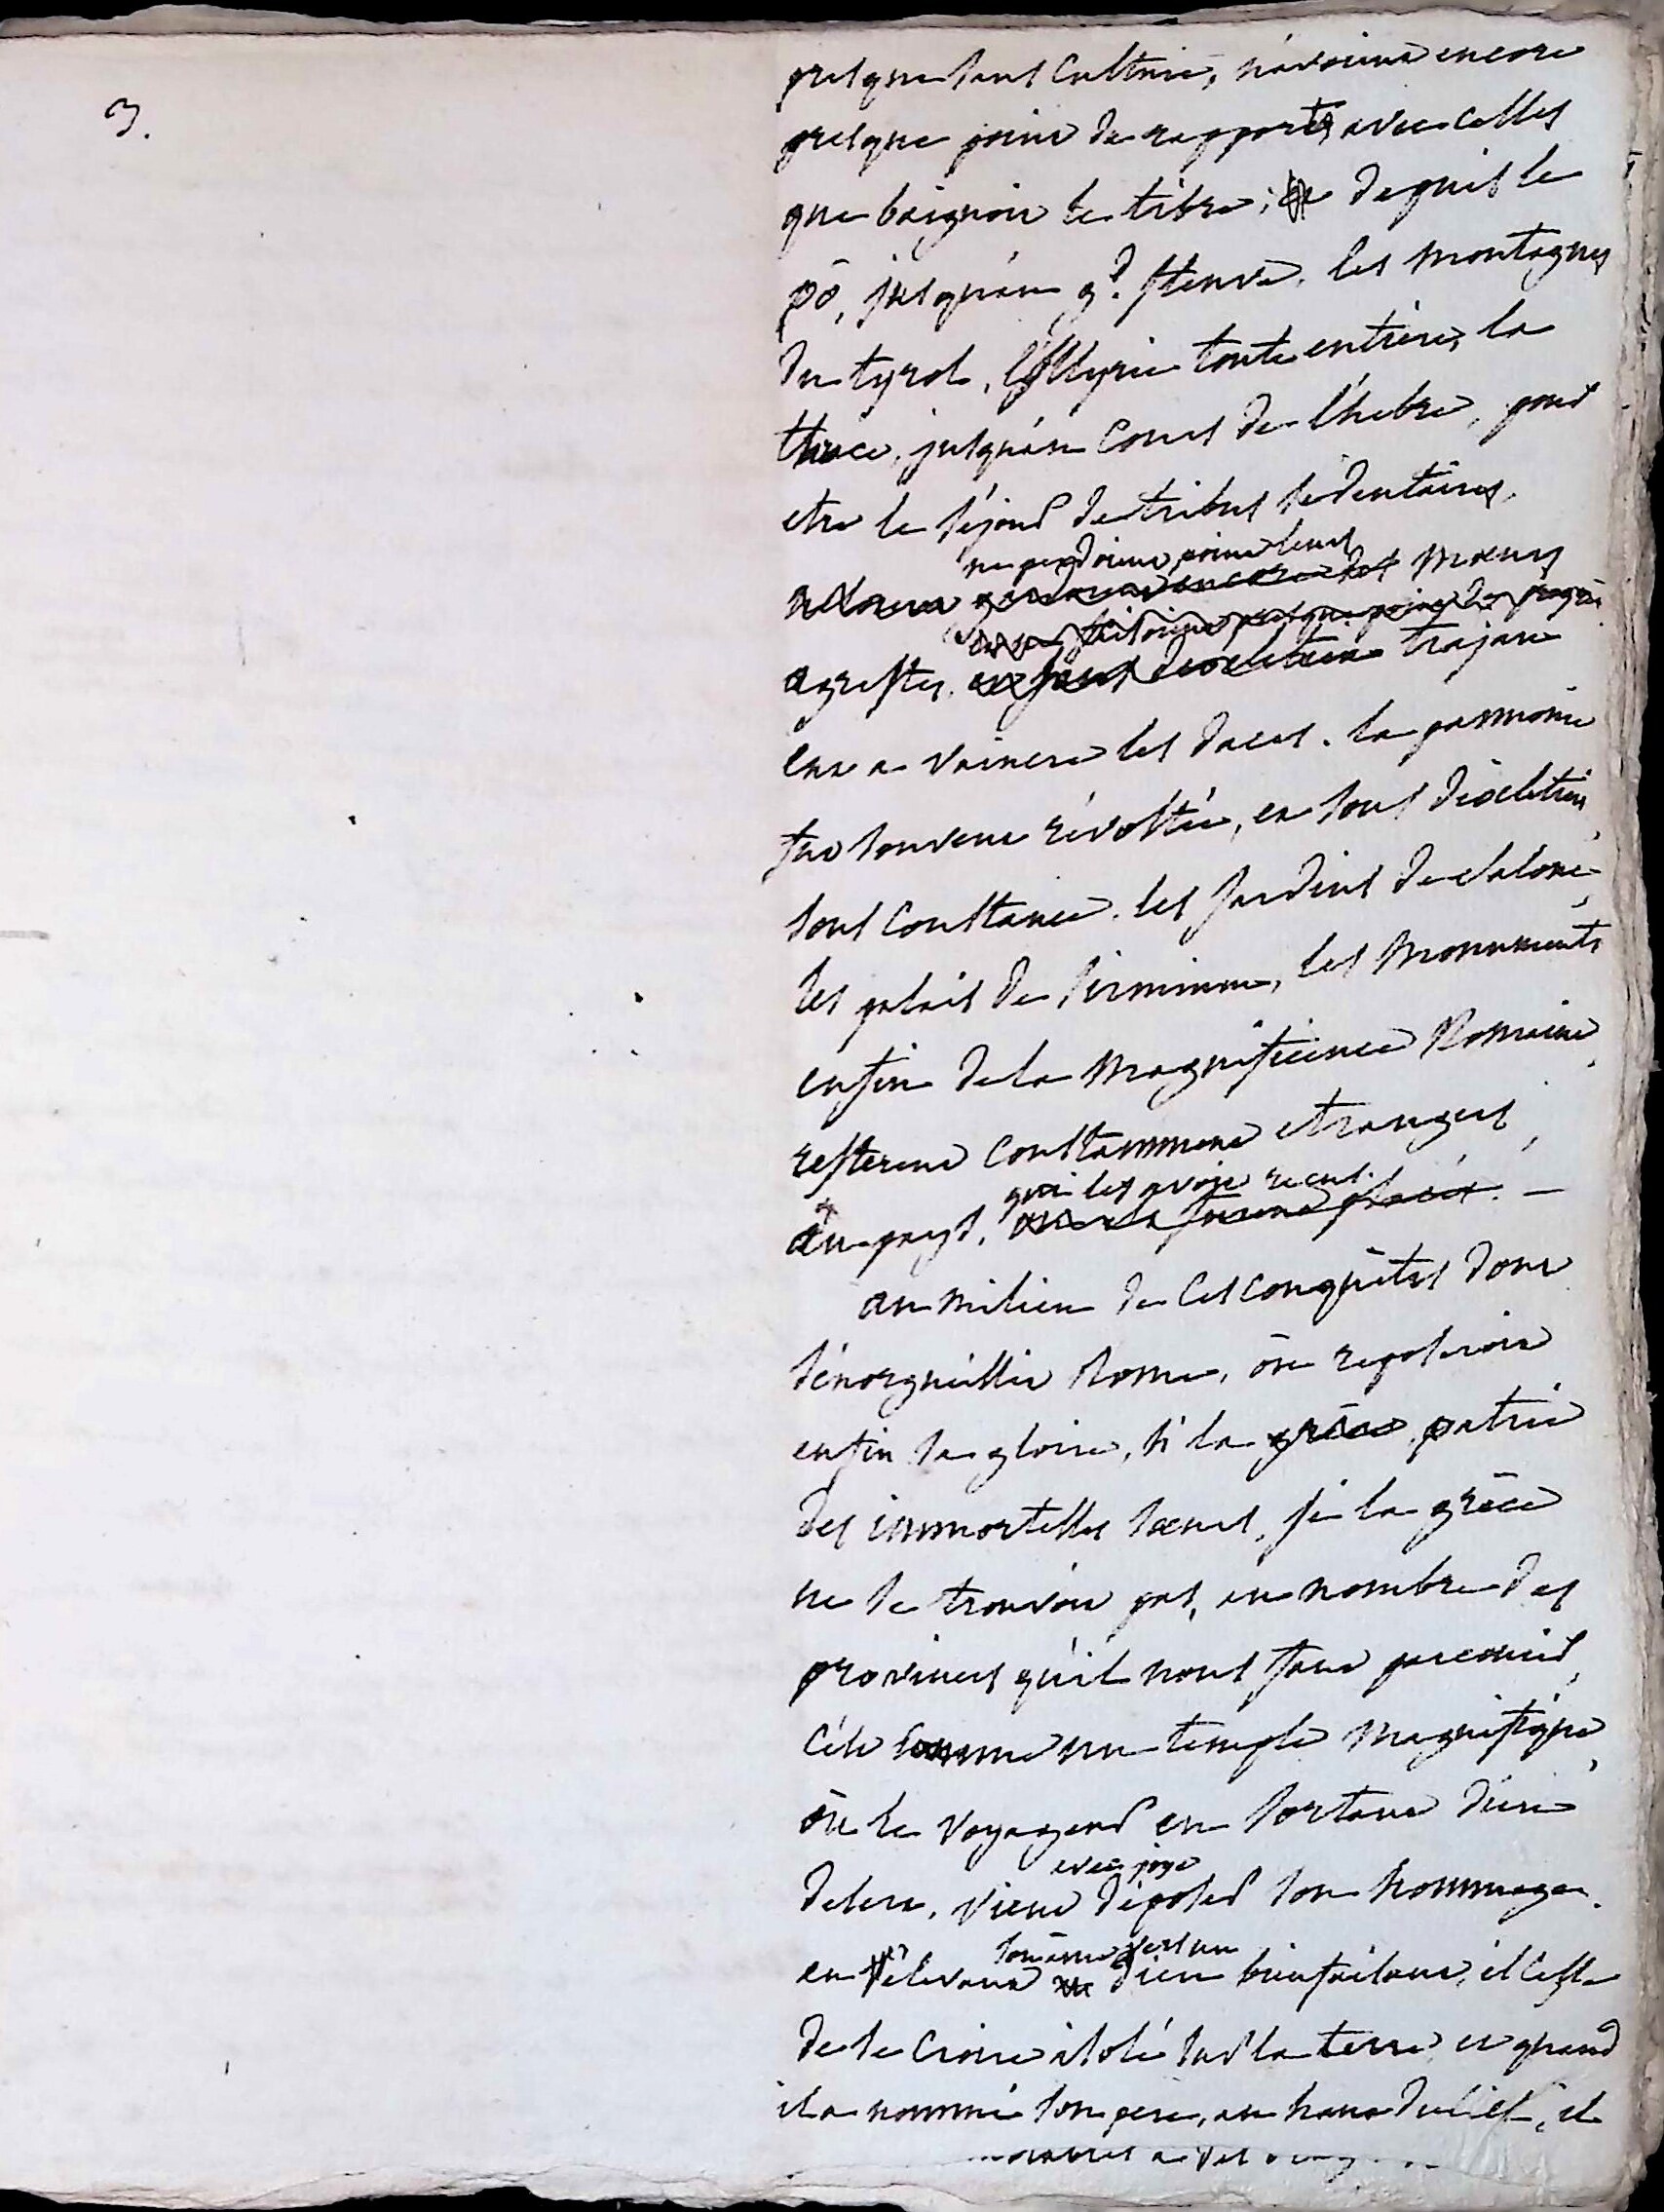 3.
presque sans culture, n'avoient encore
presque point de rapports avec celles
que baignoit le tibre; depuis le
pô, jusqu'au gd. fleuve, les montagnes
du tyrol, l'illyrie toute entière, la
thrace, jusqu'au cours de l'hebre, pour
etre le séjour de tribus sédentaires,
ne perdoient point leurs
moeurs
agrestes. trajan
eut a vaincre les daces. la pannonie
fut souvent révoltée, et sous dioclétien,
sous constance. les jardins de salone,
les palais de sirmium, les monuments
enfin de la magnificence Romaine,
resterent constamment etrangers,
qui les avoit recus.
au pays,
au milieu de ces conquêtes dont
s'énorgueillit Rome, où reposeroit
enfin sa gloire, si la grèce, patrie
des immortelles soeurs, si la grèce
ne se trouvoit pas, au nombre des
provinces qu'il nous faut parcourir,
c'est comme un temple magnifique,
où le voyageur en sortant d'un
avec joye
desert, vient déposer son hommage.
son ame vers un
en élevant dieu bienfaisant, il cesse
de se croire isolé sur la terre, et quand
il a nommé son pere, au haut du ciel, il